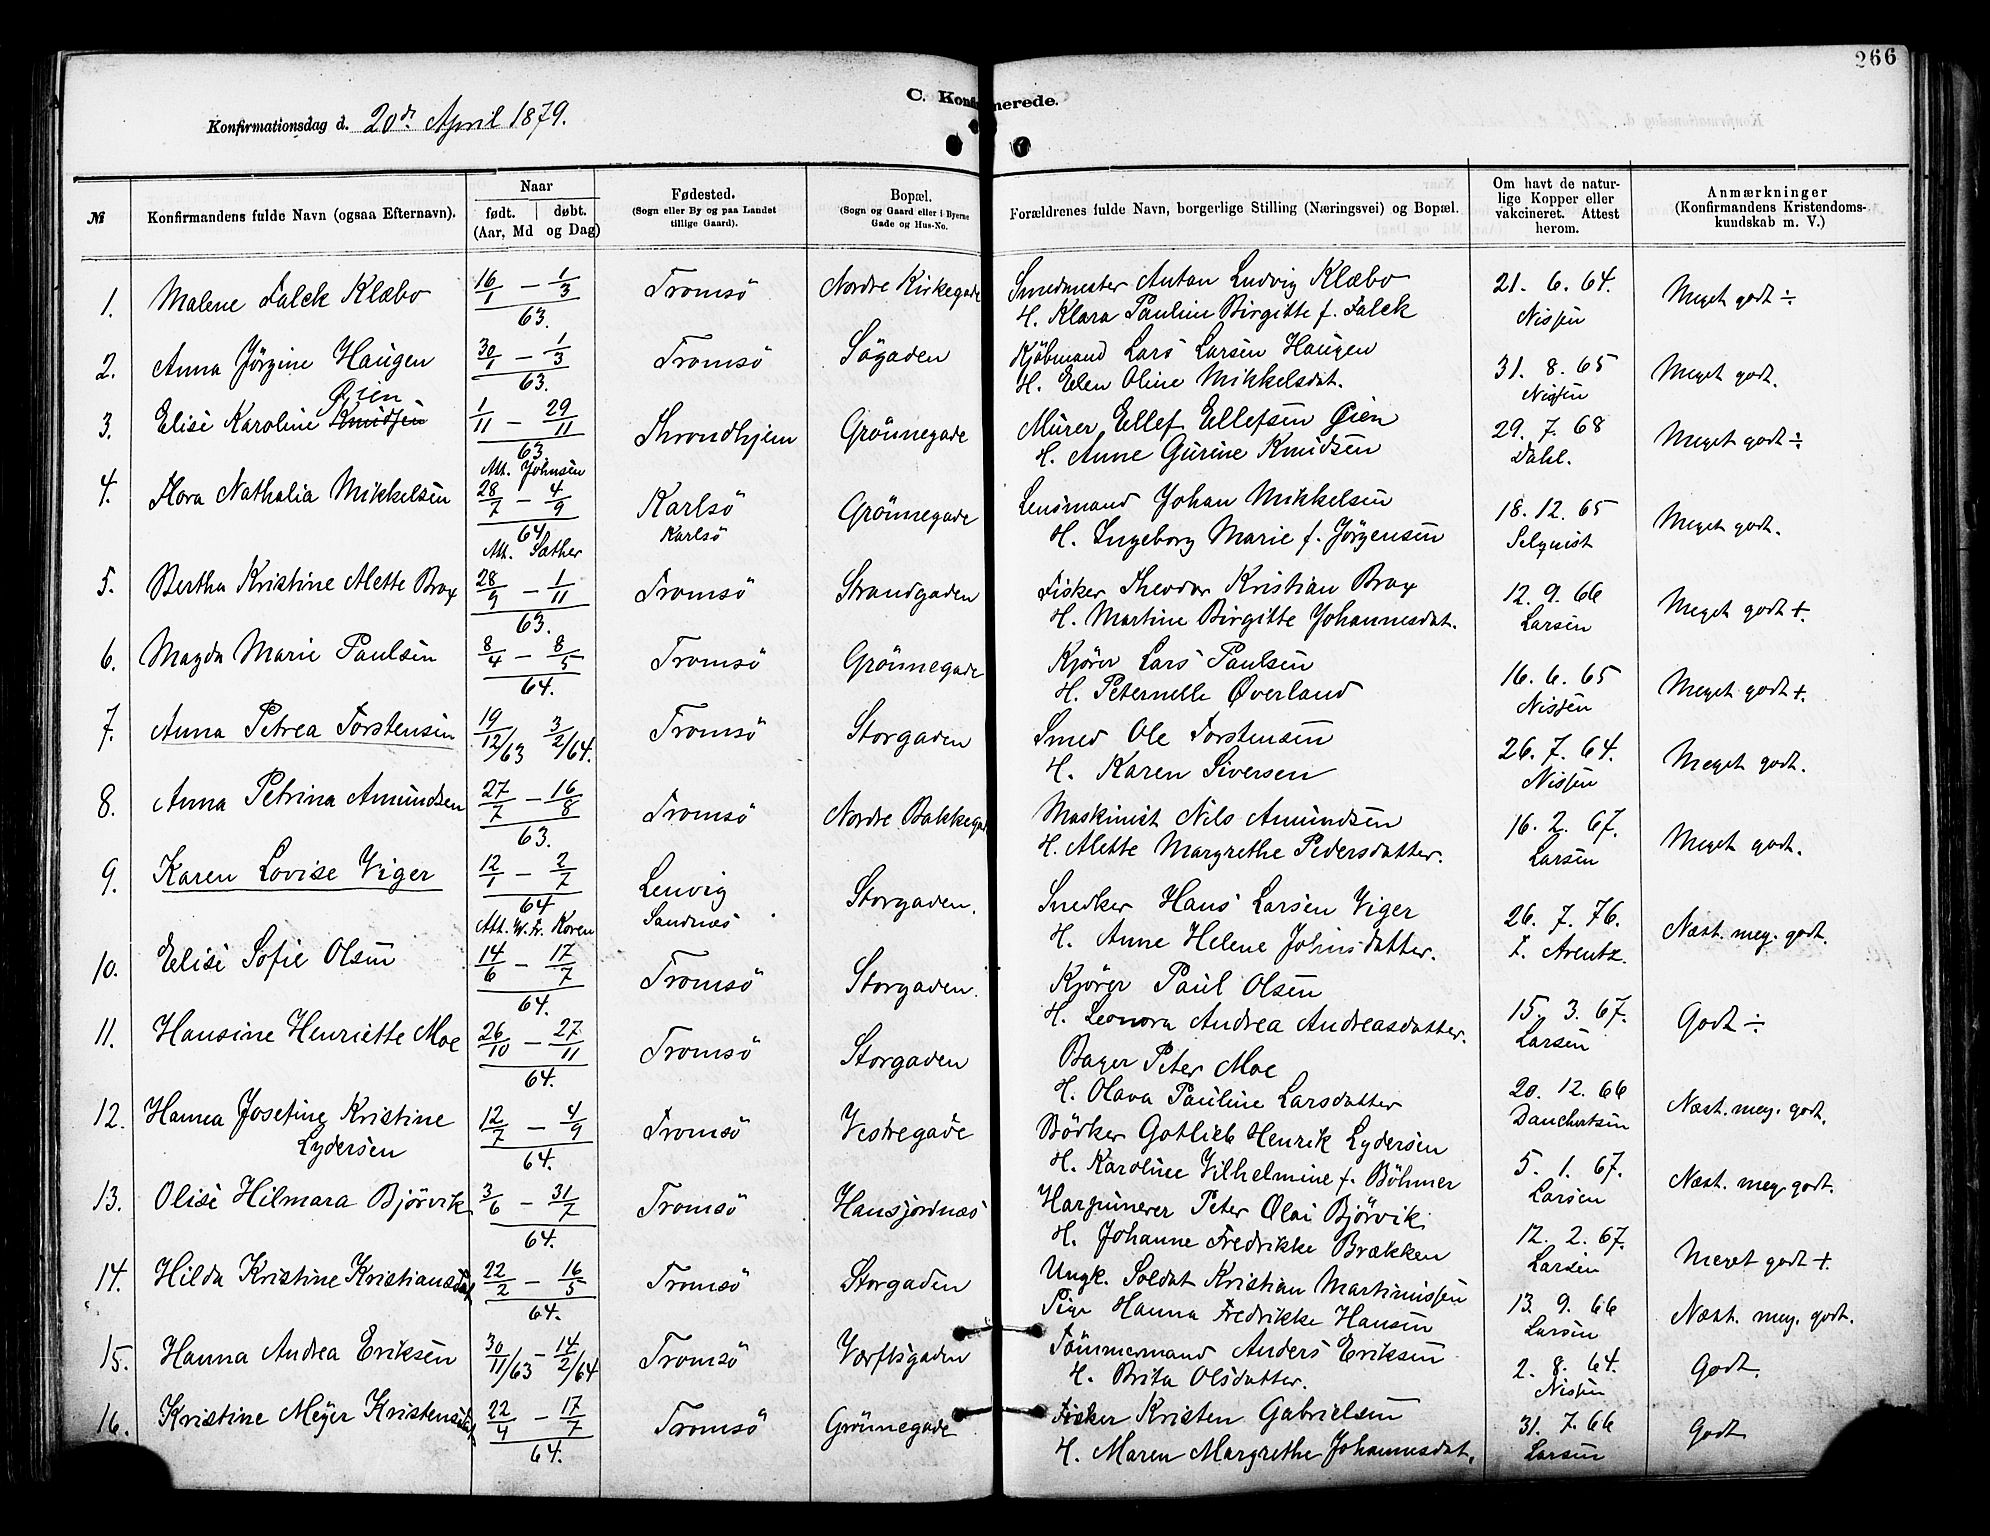 266
C. Konfirmerede.
Konfirmationsdag d. 20de April 1879.
№ | Konfirmandens fulde Navn (ogsaa Efternavn). | Naar født. døbt. (Aar, Md og Dag) | Fødested. (Sogn eller By og paa Landet tillige Gaard). | Bopæl. (Sogn og Gaard eller i Byerne Gade og Hus-No. | Forældrenes fulde Navn, borgerlige Stilling (Næringsvei) og Bopæl. | Om havt de naturlige Kopper eller vakcineret. Attest herom. | Anmærkninger (Konfirmandens Kristendomskundskab m. V.)
1. Malene Falck Klæbo 16/1 – 1/3 63. Tromsö Nordre Kirkegade Smedmester Anton Ludvig Klæbo 21. 6. 64. Meget godt ÷
H. Klara Pauline Birgitte f. Falck Nissen
2. Anna Jörgine Haugen 30/1 – 1/3 63. Tromsö Søgaden Kjöbmand Lars Larsen Haugen 31. 8. 65 Meget godt.
H. Elen Oline Mikkelsdat. Nissen
Øien
3. Elise Karoline Knudsen 1/11 – 29/11 63 Throndhjem Grönnegade Murer Ellef Ellefsen Øien 29. 7. 68 Meget godt ÷
Att. Johnsen H. Anne Gurine Knudsen Dahl.
4. Flora Nathalia Mikkelsen 28/7 – 4/9 64 Karlsö Grönnegade Lensmand Johan Mikkelsen 18. 12. 65 Meget godt.
Att. Sæther Karlsö H. Ingeborg Marie f. Jörgensen Selqvist
5. Bertha Kristine Alette Brox 28/9 – 1/11 63. Tromsö Strandgaden Fisker Theodor Kristian Brox 12. 9. 66 Meget godt +.
H. Martine Birgitte Johannesdat. Larsen
6. Magda Marie Paulsen 8/4 – 8/5 64. Tromsö Grönnegade Kjörer Lars Paulsen 16. 6. 65 Meget godt +.
H. Peternelle Øverland Nissen
7. Anna Petrea Torstensen 19/12/63 3/2/64. Tromsö Storgaden Smed Ole Torstensen 26. 7. 64. Meget godt.
H. Karen Siversen Nissen
8. Anna Petrina Amundsen 27/7 – 16/8 63. Tromsö Nordre Bakkegad Maskinist Nils Amundsen 16. 2. 67. Meget godt.
H. Alette Margrethe Pedersdatter. Larsen
9. Karen Lovise Viger 12/1 – 2/7 64 Lenvig Storgaden. Snedker Hans Larsen Viger 26. 7. 76. Næst. meg. godt.
Att. W. Fr. Koren Sandnæs H. Anne Helene Johnsdatter. F. Arentz.
10. Elise Sofie Olsen 14/6 – 17/7 64. Tromsö Storgaden. Kjörer Paul Olsen 15. 3. 67. Godt ÷
H. Leonora Andrea Andreasdatter. Larsen
11. Hansine Henriette Moe 26/10 – 27/11 64. Tromsö Storgaden Bager Peter Moe 20. 12. 66 Næst. meg. godt.
H. Olava Pauline Larsdatter Danchertsen
12. Hanna Josefine Kristine 12/7 – 4/9 64. Tromsö Vestregade Bödker Gotlieb Henrik Lydersen 5. 1. 67. Næst. meg. godt.
Lydersen H. Karoline Vilhelmine f. Böhmer Larsen
13. Olise Hilmara Bjørvik 3/6 – 31/7 64. Tromsö Hansjordnæs Harpunerer Peter Olai Bjørvik 12. 2. 67. Meget godt +.
H. Johanne Fredrikke Brækken Larsen
14. Hilda Kristine Kristiansdat 22/2 – 16/5 64. Tromsö Storgaden Ungk. Soldat Kristian Martinussen 13. 9. 66 Næst. meg. godt.
Pige Hanna Fredrikke Hansen Larsen
15. Hanna Andrea Eriksen 30/11/63 – 14/2/64 Tromsö Værftsgaden Tömmermand Anders Eriksen 2. 8. 64. Godt.
H. Brita Olsdatter. Nissen
16. Kristine Meyer Kristensdat. 22/4 – 17/7 64. Tromsö Grönnegade Fisker Kristen Gabrielsen 31. 7. 66 Godt
H. Maren Margrethe Johannesdat. Larsen